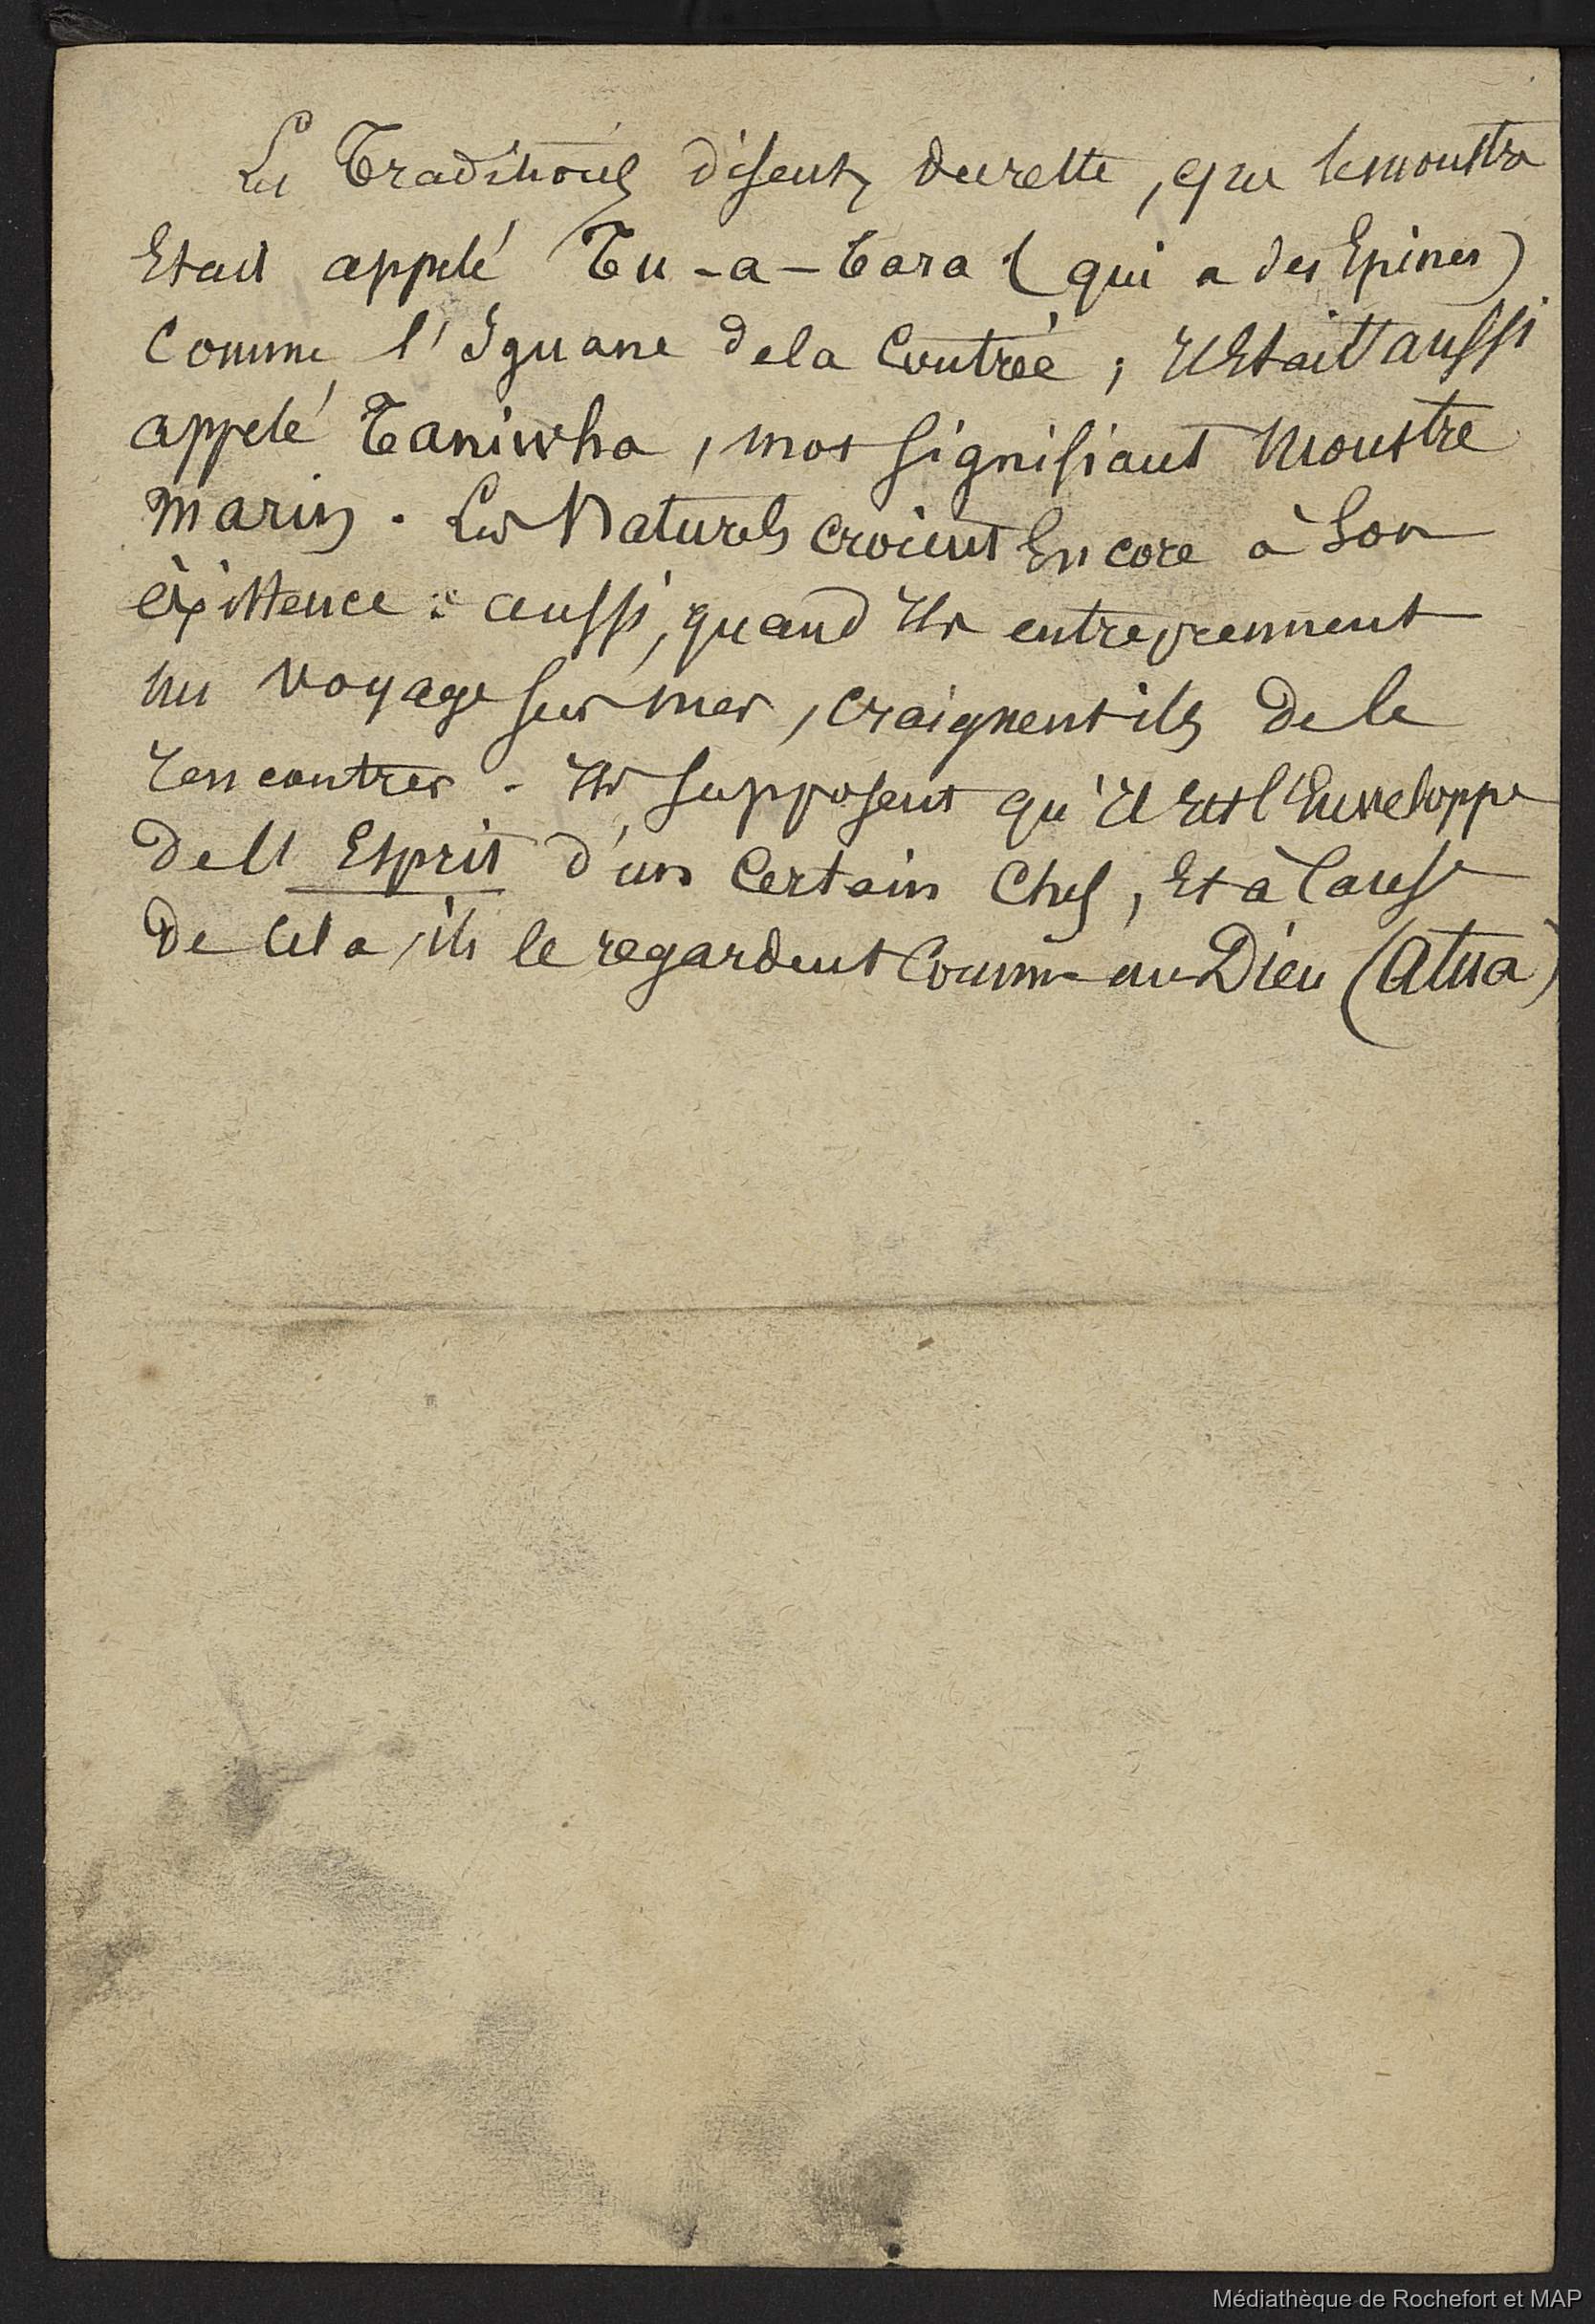 Les Traditions disent, du reste, que le monstre
Etait appelé Tu-a-Tara (qui a des Epines)
Comme l'Iguane de la Contrée ; Il Etait aussi
appelé Taniwha, mot signifiant Monstre
marin. Les Naturels croient Encore à Son
éxistence : aussi, quand Ils entreprennent
un voyage sur mer, craignent ils de le
rencontrer. Ils supposent qu'Il Est l'Enveloppe
de l'Esprit d'un Certain Chef, Et à Cause
de Cela, ils le regardent Comme un Dieu (Atua)
Médiathèque de Rochefort et MAP